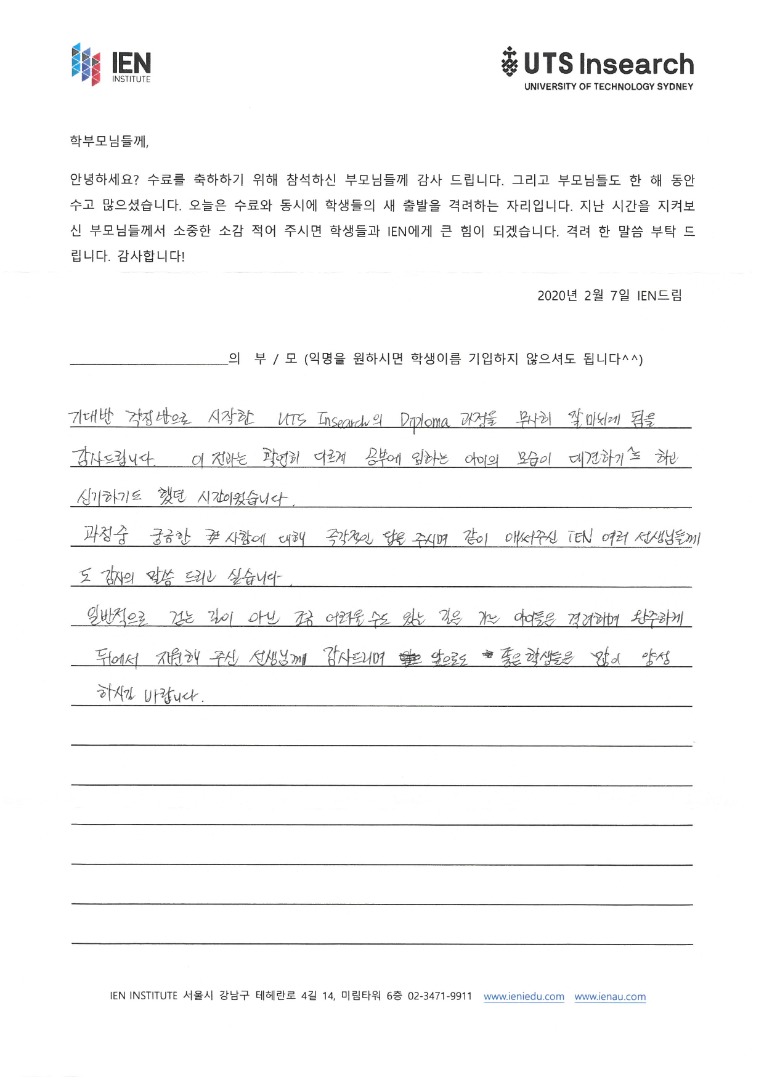 IEN
INSTITUTE
UTS Insearch
UNIVERSITY OF TECHNOLOGY SYDNEY
학부모님들께,
안녕하세요? 수료를 축하하기 위해 참석하신 부모님들께 감사 드립니다. 그리고 부모님들도 한 해 동안
수고 많으셨습니다. 오늘은 수료와 동시에 학생들의 새 출발을 격려하는 자리입니다. 지난 시간을 지켜보
신 부모님들께서 소중한 소감 적어 주시면 학생들과 IEN에게 큰 힘이 되겠습니다. 격려 한 말씀 부탁 드
립니다. 감사합니다!
2020년 2월 7일 IEN드림
의 부 / 모 (익명을 원하시면 학생이름 기입하지 않으셔도 됩니다^^)
기대반 걱정반으로 시작한 UTS Insearch의 Diploma 과정을 무사히 잘 마치게 됨을
감사드립니다. 이 전과는 확연히 다르게 공부에 임하는 아이의 모습이 대견하기도 하고
신기하기도 했던 시간이었습니다.
과정중 궁금한 사항에 대해 즉각적인 답을 주시며 같이 애써주신 IEN 여러 선생님들께
도 감사의 말씀 드리고 싶습니다.
일반적으로 걷는 길이 아닌 조금 어려울 수도 있는 길을 가는 아이들을 격려하며 완주하게
뒤에서 지원해 주신 선생님께 감사드리며 앞으로도 좋은 학생들을 많이 양성
하시길 바랍니다.
IEN INSTITUTE 서울시 강남구 테헤란로 4길 14, 미림타워 6층 02-3471-9911 www.ieniedu.com www.ienau.com